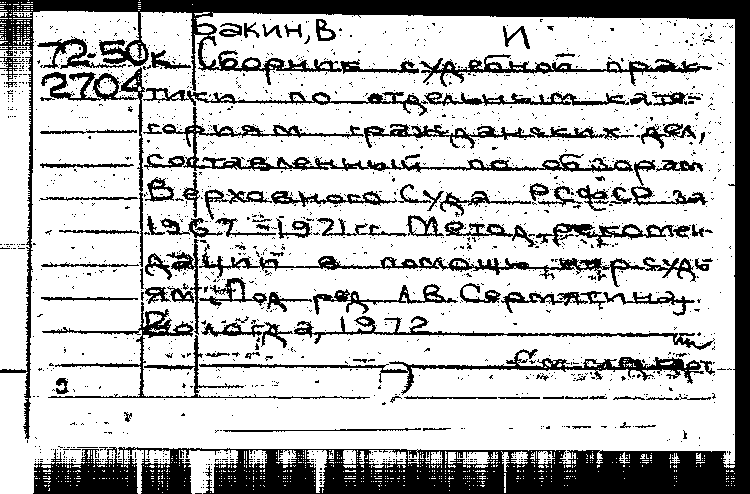 Бакин, В. И
72-50к Сборник судебной прак-
2704 тики по отдельным кате-
гориям гражданских дел,
составленный по обзорам
Верховного Суда РСФСР за
1967-1971 гг. Метод. рекомен-
дации в помощь нар. судь
ям. Под ред. А.В. Сермягина,
Вологда, 1972
См след карт